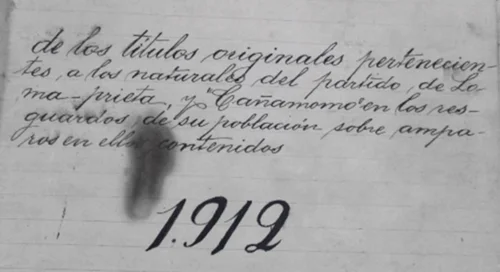 de los titulos originales pertenecien-
tes, a los naturales del partido, de Lo-
ma-prieta, y "Cañamomo" en los res-
guardos, de su población sobre ampa-
ros en ellos contenidos
1.912